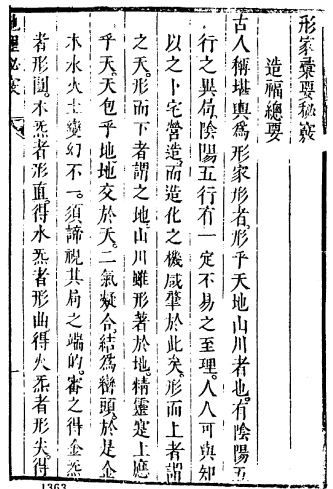 形家彙要秘竅
造福總要
古人稱堪輿為形家形者形乎天地山川者也有陰陽五
行之異局陰陽五行有一定不易之至理人人可與知
以之卜宅營造而造化之機咸肇於此矣形而上者謂
之天形而下者謂之地山川雖形著於地精靈寔上應
乎天天包乎地地交於天二氣凝合結為巒頭於是金
木水火土變幻不一須諦視其局之端的審之得金炁
者形圓木炁者形直得水炁者形曲得火炁者形尖得
地理秘竅
一
1363